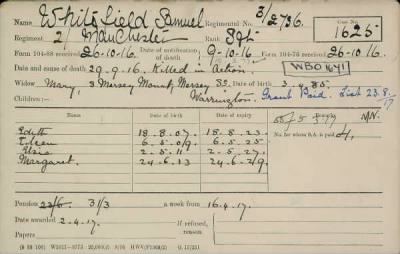 Name Whitsfield Samuel Regimental No. 3/2736. Case No.
Regiment 2/ Manchester Rank Sgt. 1625
Form 104-88 received 26-10-16. Date of notification of death 9-10-16 Form 104-76 received 26.10.16.
Date and cause of death 29-9-16. Killed in Action. WBO 1641
Widow Mary, 3 Mersey Mount, Mersey St. 3.4.85.
Children:— Warrington. Grant Paid. List 23.8.17
Name Date of birth Date of expiry
Edith 18.8.07. 18.8.23.
Eileen 6.5.09. 6.5.25
Elsie 2.5.11 2.5.27.
Margaret. 24.6.13 24.6.29.
No. for whom S.A. is paid 4.
Pension 22/6. 31/3 a week from 16.4.17.
Date awarded 2.4.17. If refused, reason
Papers